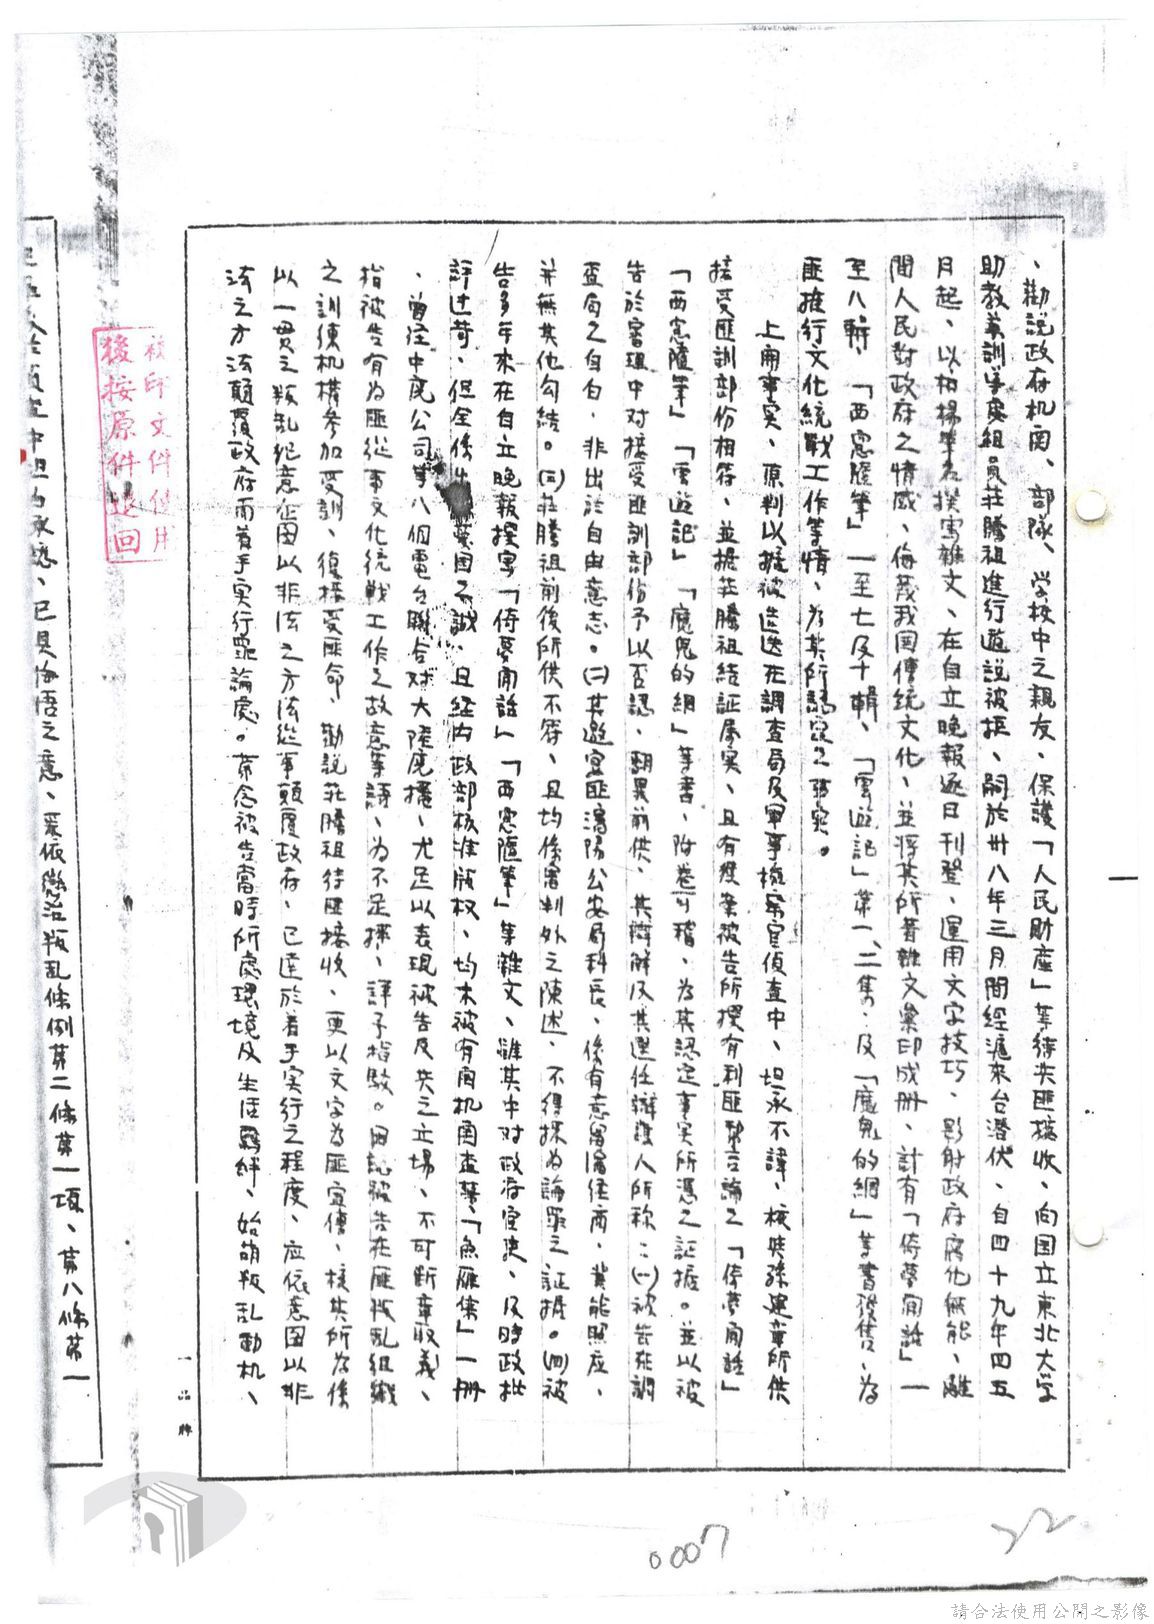 、勸說政府机関、部隊、学校中之親友、保護「人民財產」等待共匪接收、向国立東北大学
助教兼訓導處組員莊騰祖進行遊説被拒、嗣於卅八年三月間經滬來台潛伏、自四十九年四五
月起、以柏楊筆名撰寫雜文、在自立晚報逐日刊登、運用文字技巧、影射政府腐化無能、離
間人民對政府之情感、侮蔑我国傳統文化、並將其所著雜文彙印成册、計有「倚夢閒話」一
至八輯、「西窓隨筆」一至七及十輯、「雲遊記」第一、二集、及「魔鬼的網」等書發售、為
匪推行文化統戰工作等情、為其所認定之事实。
上開事实、原判以據被告迭在調查局及軍事檢察官偵查中、坦承不諱、核與孫建章所供
接受匪訓部份相符、並據莊騰祖結証屬实、且有獲案被告所撰有利匪幫言論之「倚夢閒話」
「西窓隨筆」「雲遊記」「魔鬼的網」等書、附卷可稽、為其認定事实所憑之証據。並以被
告於審理中对接受匪訓部份予以否認、翻異前供、其辯解及其選任辯護人所称：(一)被告在調
查局之自白、非出於自由意志。(二)其邀宴匪瀋陽公安局科長、係有意留瀋經商、冀能照应、
并無其他勾結。(三)莊騰祖前後所供不符、且均係審判外之陳述、不得採為論罪之証据。(四)被
告多年來在自立晚報撰寫「倚夢閒話」「西窓隨筆」等雜文、雖其中对政府官吏、及時政批
評过苛、但全係出 莫国忠誠、且経内政部核准版权、均未被有関机関查禁、「魚雁集」一册
、曾経中廣公司等八個電台聯合对大陸廣播、尤足以表現被告反共之立場、不可断章取義、
指被告有為匪從事文化統戰工作之故意等語、為不足採、詳予指駁。因認被告在匪叛乱組織
之訓練机構參加受訓、復接受匪命、勸説莊騰祖待匪接收、更以文字為匪宣傳、核其所為係
以一貫之叛乱犯意企圖以非法之方法從事顛覆政府、已達於着手实行之程度、应依意圖以非
法之方法顛覆政府而着手实行罪論處。第念被告當時所處環境及生活羈絆、始萌叛乱動机、
中坦白承認、已具悔悟之意、爰依懲治叛乱條例第二條第一項、第八條第一
核印文件使用
後按原件退回
一品牌
0007
22
請合法使用公開之影像